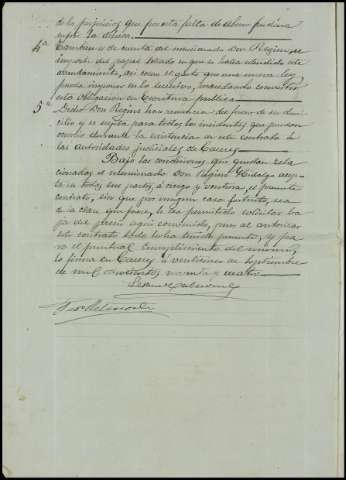 de los perjuicios que por esta falta de abono pudiera
sufrir la dueña.
4ª También es de cuenta del mencionado Don Regino, el
importe del papel sellado en que se halla extendido este
arrendamiento, así como el gasto que una nueva ley
pueda imponer en lo sucesivo, mandando convertir
esta obligacion en Escritura publica
5ª Dicho Don Regino hace renuncia del fuero de su domi
cilio y se sujeta, para todos los incidentes que puedan
ocurrir durante la existencia de este contrato á
las autoridades judiciales de Cáceres
Bajo las condiciones que quedan rela
cionadas el mencionado Don Regino Hidalgo acep
ta en todas sus partes, á riesgo y ventura, el presente
contrato, sin que por ningun caso fortuito, sea
de la clase que fuese, le sea permitido solicitar ba
ja del precio aqui convenido, pues al autorizar
este contrato todo lo ha tenido presente, y pa
ra el puntual cumplimiento del mismo,
lo firma en Cáceres á veintiseis de Septiembre
de mil ochocientos noventa y cuatro